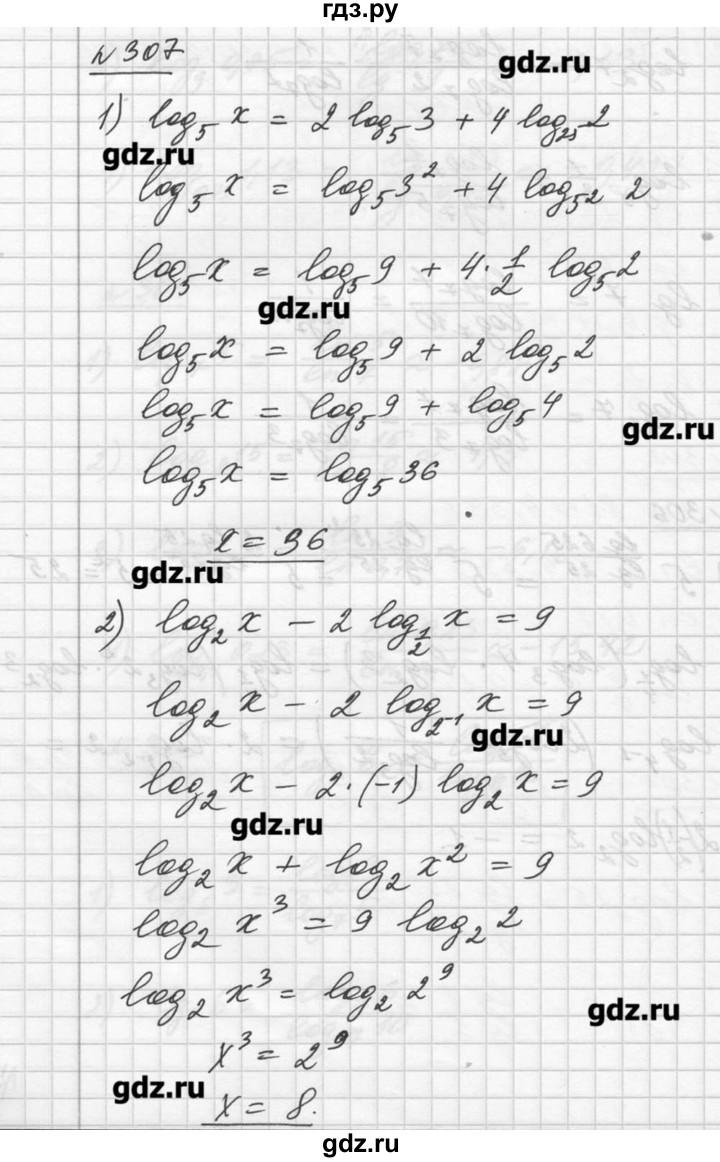 гдз.ру
№307
gdz.ru
1) log₅ x = 2 log₅ 3 + 4 log₂₅ 2
gdz.ru
log₅ x = log₅ 3² + 4 log_{5²} 2
log₅ x = log₅ 9 + 4 · 1/2 log₅ 2
gdz.ru
log₅ x = log₅ 9 + 2 log₅ 2
log₅ x = log₅ 9 + log₅ 4
gdz.ru
log₅ x = log₅ 36
x = 36
gdz.ru
2) log₂ x − 2 log_{1/2} x = 9
log₂ x − 2 log_{2⁻¹} x = 9
gdz.ru
log₂ x − 2 · (−1) log₂ x = 9
gdz.ru
log₂ x + log₂ x² = 9
log₂ x³ = 9 log₂ 2
log₂ x³ = log₂ 2⁹
gdz.ru
x³ = 2⁹
gdz.ru
x = 8.
gdz.ru